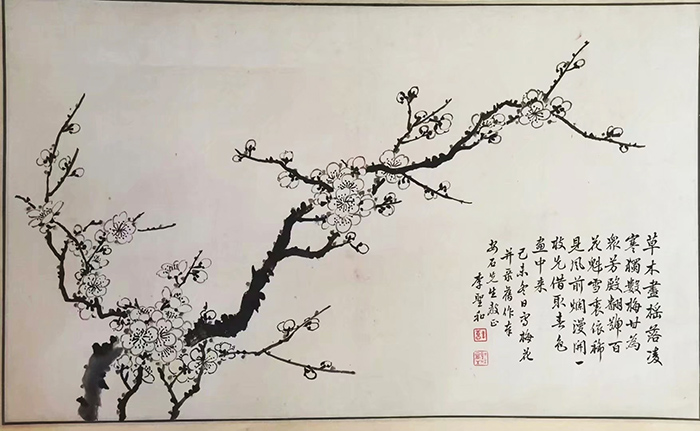 草木盡搖落凌
寒獨數梅甘為
衆芳殿翻號百
花魁雪裏依稀
見風前爛漫開一
枝先借取春色
畫中來
己未冬日寫梅花
并录舊作奉
安石先生教正
李聖和